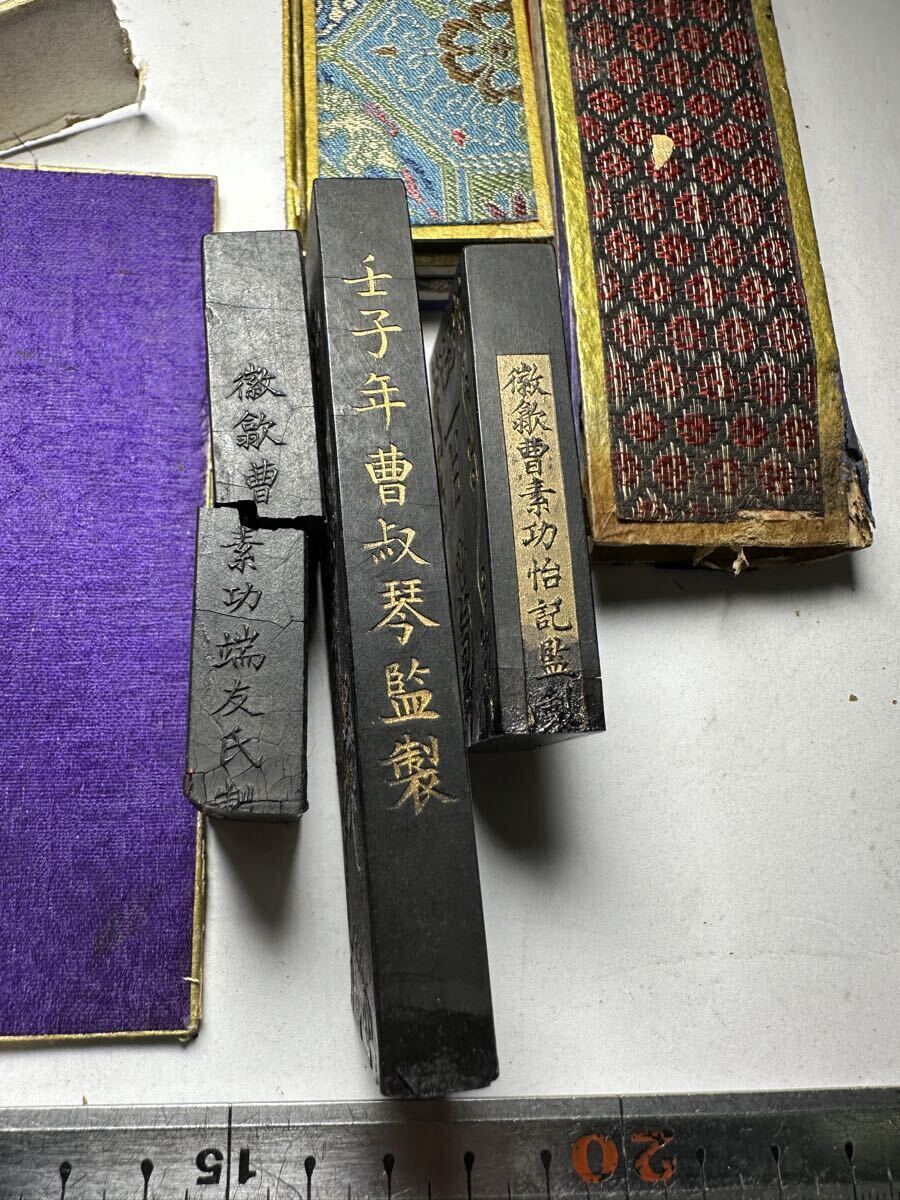 徽歙曹素功端友氏製
壬子年曹叔琴監製
徽歙曹素功怡記監製
15
20